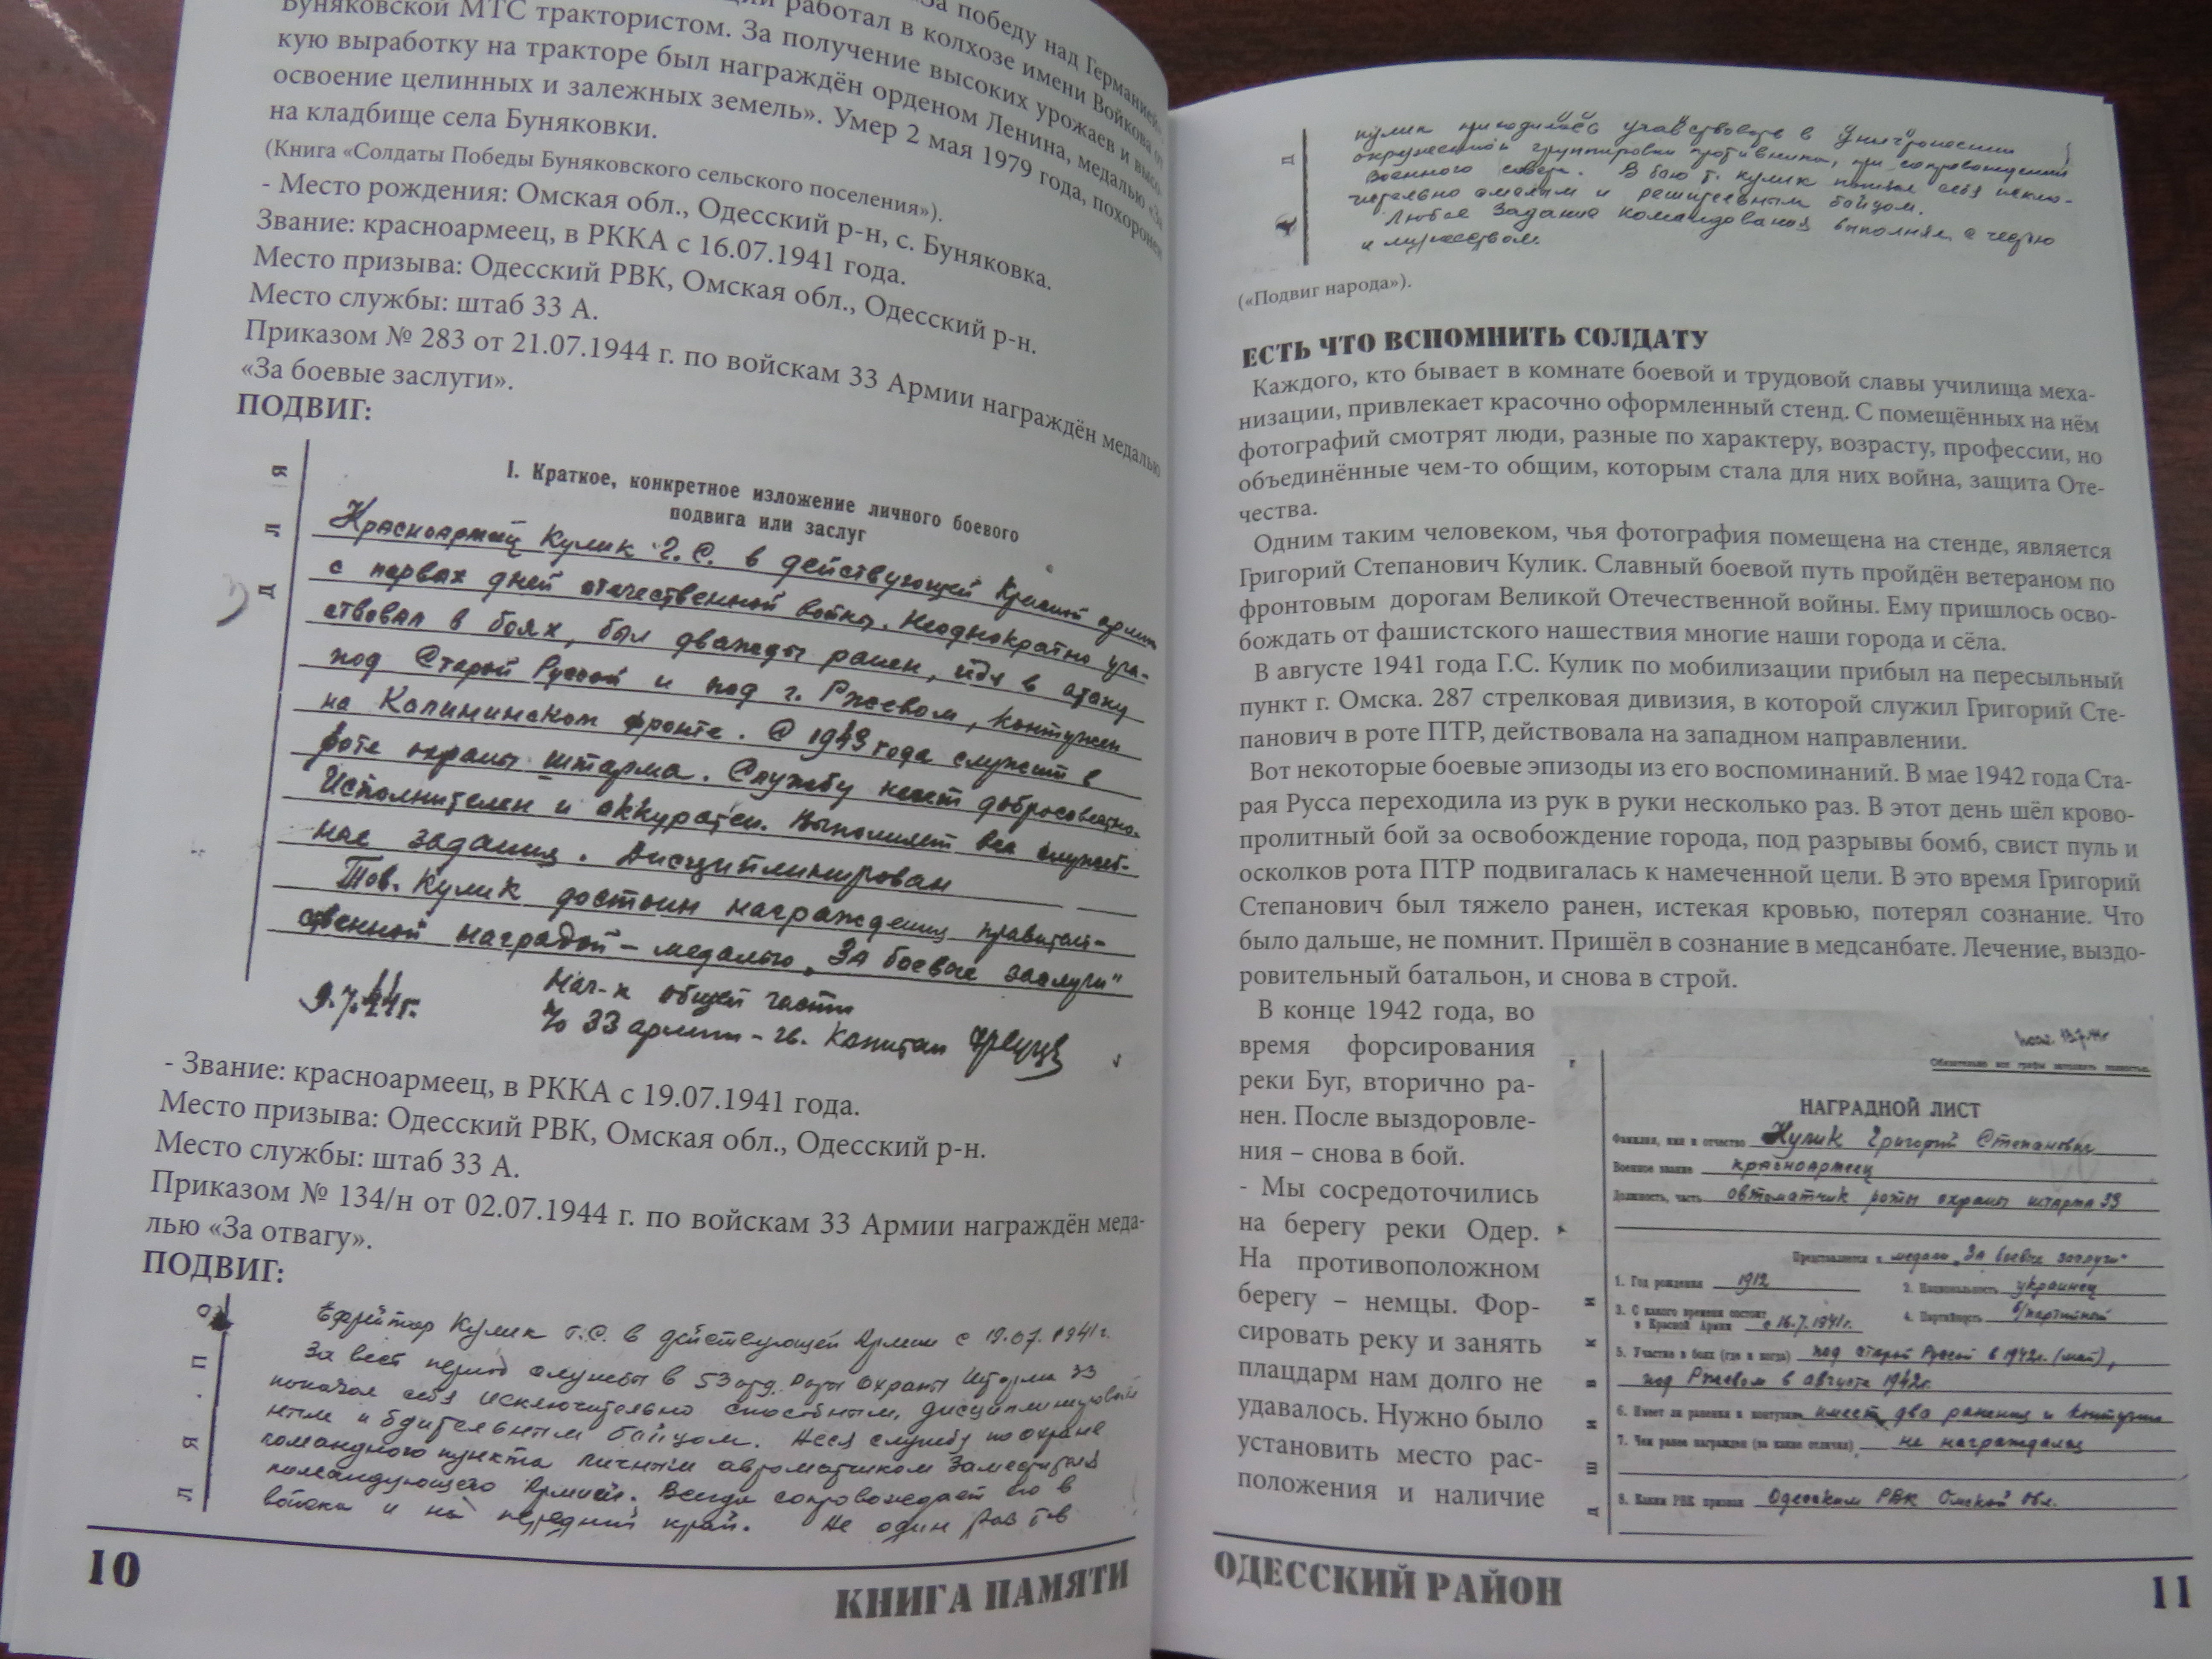 «За победу над Германией».
работал в колхозе имени Войкова от
Буняковской МТС трактористом. За получение высоких урожаев и высо-
кую выработку на тракторе был награждён орденом Ленина, медалью «За
освоение целинных и залежных земель». Умер 2 мая 1979 года, похоронен
на кладбище села Буняковки.
(Книга «Солдаты Победы Буняковского сельского поселения»).
- Место рождения: Омская обл., Одесский р-н, с. Буняковка.
Звание: красноармеец, в РККА с 16.07.1941 года.
Место призыва: Одесский РВК, Омская обл., Одесский р-н.
Место службы: штаб 33 А.
Приказом № 283 от 21.07.1944 г. по войскам 33 Армии награждён медалью
«За боевые заслуги».
ПОДВИГ:
Д Л Я
I. Краткое, конкретное изложение личного боевого
подвига или заслуг
Красноармеец Кулик Г.С. в действующей Красной армии
с первых дней отечественной войны. Неоднократно уча-
ствовал в боях, был дважды ранен, идя в атаку
под Старой Руссой и под г. Ржевом, контужен
на Калининском фронте. С 1943 года служит в
роте охраны штарма. Службу несет добросовестно.
Исполнителен и аккуратен. Выполняет все служеб-
ные задания. Дисциплинирован
Тов. Кулик достоин награждения правитель-
ственной наградой - медалью „За боевые заслуги"
9.7.44г.
Нач-к общей части
33 армии - гв. Капитан
- Звание: красноармеец, в РККА с 19.07.1941 года.
Место призыва: Одесский РВК, Омская обл., Одесский р-н.
Место службы: штаб 33 А.
Приказом № 134/н от 02.07.1944 г. по войскам 33 Армии награждён меда-
лью «За отвагу».
ПОДВИГ:
Л Я . П О
Ефрейтор Кулик Г.С. в действующей Армии с 19.07.1941г.
За весь период службы в 53 отд. роты охраны Штарма 33
показал себя исключительно способным, дисциплинирован
ным и бдительным бойцом. Неся службу по охране
командного пункта личным автоматчиком Заместителя
командующего Армией. Всегда сопровождает его в
войска и на передний край. Не один раз тов
10
КНИГА ПАМЯТИ
Д
кулик приходилось участвовать в уничтожении
окруженной группировки противника, при сопровождении
Военного совета. В бою т. Кулик показал себя исклю-
чительно смелым и решительным бойцом.
Любое задание командования выполнял с честью
и мужеством.
(«Подвиг народа»).
ЕСТЬ ЧТО ВСПОМНИТЬ СОЛДАТУ
Каждого, кто бывает в комнате боевой и трудовой славы училища меха-
низации, привлекает красочно оформленный стенд. С помещённых на нём
фотографий смотрят люди, разные по характеру, возрасту, профессии, но
объединённые чем-то общим, которым стала для них война, защита Оте-
чества.
Одним таким человеком, чья фотография помещена на стенде, является
Григорий Степанович Кулик. Славный боевой путь пройдён ветераном по
фронтовым дорогам Великой Отечественной войны. Ему пришлось осво-
бождать от фашистского нашествия многие наши города и сёла.
В августе 1941 года Г.С. Кулик по мобилизации прибыл на пересыльный
пункт г. Омска. 287 стрелковая дивизия, в которой служил Григорий Сте-
панович в роте ПТР, действовала на западном направлении.
Вот некоторые боевые эпизоды из его воспоминаний. В мае 1942 года Ста-
рая Русса переходила из рук в руки несколько раз. В этот день шёл крово-
пролитный бой за освобождение города, под разрывы бомб, свист пуль и
осколков рота ПТР подвигалась к намеченной цели. В это время Григорий
Степанович был тяжело ранен, истекая кровью, потерял сознание. Что
было дальше, не помнит. Пришёл в сознание в медсанбате. Лечение, выздо-
ровительный батальон, и снова в строй.
В конце 1942 года, во
время форсирования
реки Буг, вторично ра-
нен. После выздоровле-
ния – снова в бой.
- Мы сосредоточились
на берегу реки Одер.
На противоположном
берегу – немцы. Фор-
сировать реку и занять
плацдарм нам долго не
удавалось. Нужно было
установить место рас-
положения и наличие
Обязательно все графы заполнять полностью.
НАГРАДНОЙ ЛИСТ
Фамилия, имя и отчество Кулик Григорий Степанович
Военное звание красноармеец
Должность, часть автоматчик роты охраны штарма 33
Представляется к медали „За боевые заслуги"
1. Год рождения 1912
2. Национальность украинец
3. С какого времени состоит
в Красной Армии с 16.7.1941г.
4. Партийность б/партийный
5. Участие в боях (где и когда) под старой Руссой в 1942г. (май),
под Ржевом в августе 1942г.
6. Имеет ли ранения и контузии имеет два ранения и контузию
7. Чем ранее награжден (за какие отличия) не награждался
8. Каким РВК призван Одесским РВК Омской обл.
ОДЕССКИЙ РАЙОН
11